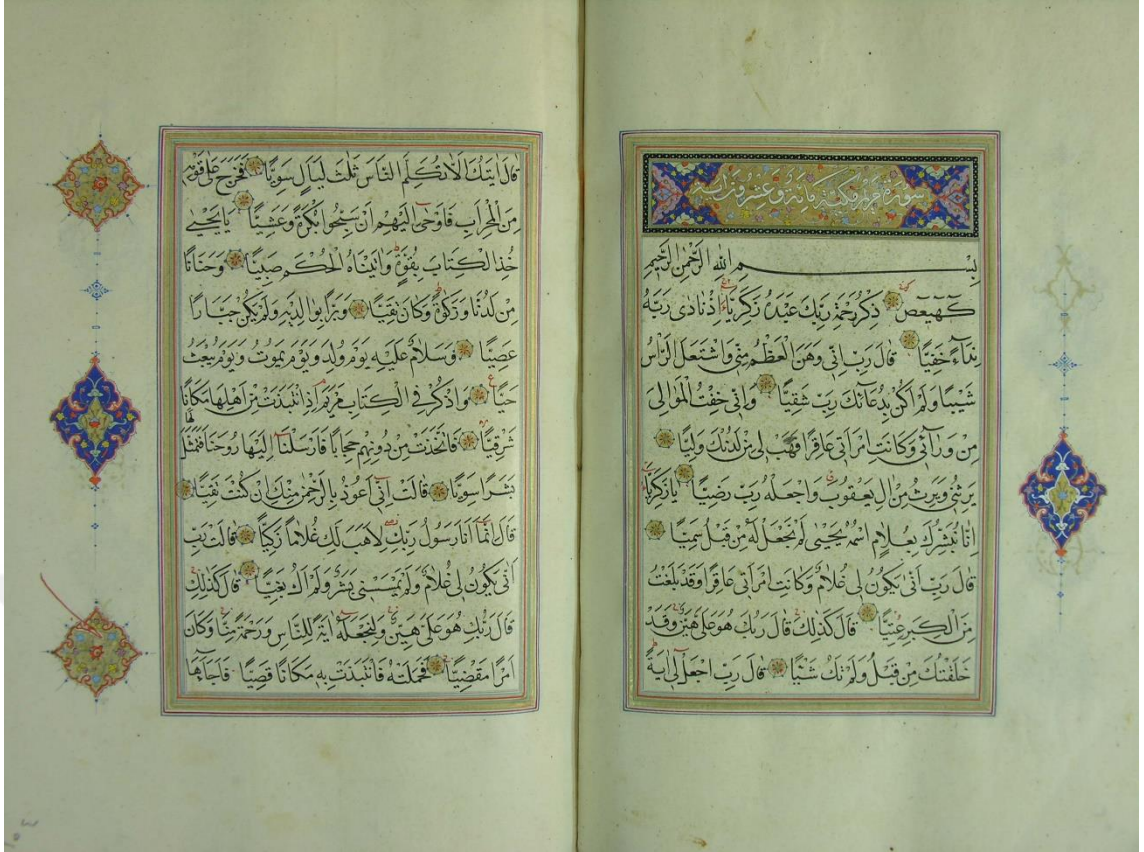 سورة مريم مكية مائة وعشرون اية
بِسْمِ اللهِ الرَّحْمٰنِ الرَّحِيمِ
كٓهٰيٰعٓصٓ ذِكْرُ رَحْمَةِ رَبِّكَ عَبْدَهُ زَكَرِيَّاءَ اِذْ نَادٰى رَبَّهُ
نِدَآءً خَفِيًّا قَالَ رَبِّ اِنِّى وَهَنَ الْعَظْمُ مِنِّى وَاشْتَعَلَ الرَّاْسُ
شَيْبًا وَلَمْ اَكُنْ بِدُعَآئِكَ رَبِّ شَقِيًّا وَاِنِّى خِفْتُ الْمَوَالِىَ
مِنْ وَرَآئِى وَكَانَتِ امْرَاَتِى عَاقِرًا فَهَبْ لِى مِنْ لَدُنْكَ وَلِيًّا
يَرِثُنِى وَيَرِثُ مِنْ اٰلِ يَعْقُوبَ وَاجْعَلْهُ رَبِّ رَضِيًّا يَا زَكَرِيَّآ
اِنَّا نُبَشِّرُكَ بِغُلَامٍ اسْمُهُ يَحْيٰى لَمْ نَجْعَلْ لَهُ مِنْ قَبْلُ سَمِيًّا
قَالَ رَبِّ اَنّٰى يَكُونُ لِى غُلَامٌ وَكَانَتِ امْرَاَتِى عَاقِرًا وَقَدْ بَلَغْتُ
مِنَ الْكِبَرِ عِتِيًّا قَالَ كَذٰلِكَ قَالَ رَبُّكَ هُوَ عَلَىَّ هَيِّنٌ وَقَدْ
خَلَقْتُكَ مِنْ قَبْلُ وَلَمْ تَكُ شَيْئًا قَالَ رَبِّ اجْعَلْ لِى اٰيَةً
قَالَ اٰيَتُكَ اَلَّا تُكَلِّمَ النَّاسَ ثَلٰثَ لَيَالٍ سَوِيًّا فَخَرَجَ عَلٰى قَوْمِهِ
مِنَ الْمِحْرَابِ فَاَوْحٰى اِلَيْهِمْ اَنْ سَبِّحُوا بُكْرَةً وَعَشِيًّا يَا يَحْيٰى
خُذِ الْكِتَابَ بِقُوَّةٍ وَاٰتَيْنَاهُ الْحُكْمَ صَبِيًّا وَحَنَانًا
مِنْ لَدُنَّا وَزَكٰوةً وَكَانَ تَقِيًّا وَبَرًّا بِوَالِدَيْهِ وَلَمْ يَكُنْ جَبَّارًا
عَصِيًّا وَسَلَامٌ عَلَيْهِ يَوْمَ وُلِدَ وَيَوْمَ يَمُوتُ وَيَوْمَ يُبْعَثُ
حَيًّا وَاذْكُرْ فِى الْكِتَابِ مَرْيَمَ اِذِ انْتَبَذَتْ مِنْ اَهْلِهَا مَكَانًا
شَرْقِيًّا فَاتَّخَذَتْ مِنْ دُونِهِمْ حِجَابًا فَاَرْسَلْنَآ اِلَيْهَا رُوحَنَا فَتَمَثَّلَ لَهَا
بَشَرًا سَوِيًّا قَالَتْ اِنِّى اَعُوذُ بِالرَّحْمٰنِ مِنْكَ اِنْ كُنْتَ تَقِيًّا
قَالَ اِنَّمَا اَنَا رَسُولُ رَبِّكِ لِاَهَبَ لَكِ غُلَامًا زَكِيًّا قَالَتْ رَبِّ
اَنّٰى يَكُونُ لِى غُلَامٌ وَلَمْ يَمْسَسْنِى بَشَرٌ وَلَمْ اَكُ بَغِيًّا قَالَ كَذٰلِكِ
قَالَ رَبُّكِ هُوَ عَلَىَّ هَيِّنٌ وَلِنَجْعَلَهُ اٰيَةً لِلنَّاسِ وَرَحْمَةً مِنَّا وَكَانَ
اَمْرًا مَقْضِيًّا فَحَمَلَتْهُ فَانْتَبَذَتْ بِهِ مَكَانًا قَصِيًّا فَاَجَآءَهَا